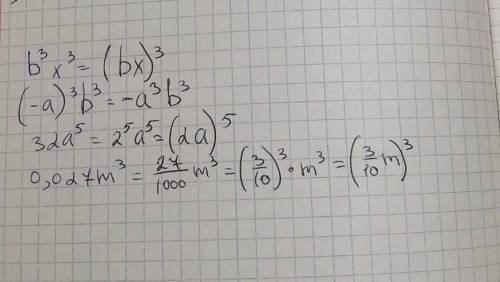 b³x³ = (bx)³
(-a)³b³ = -a³b³
32a⁵ = 2⁵a⁵ = (2a)⁵
0,027m³ = 27/1000 m³ = (3/10)³ · m³ = (3/10 m)³